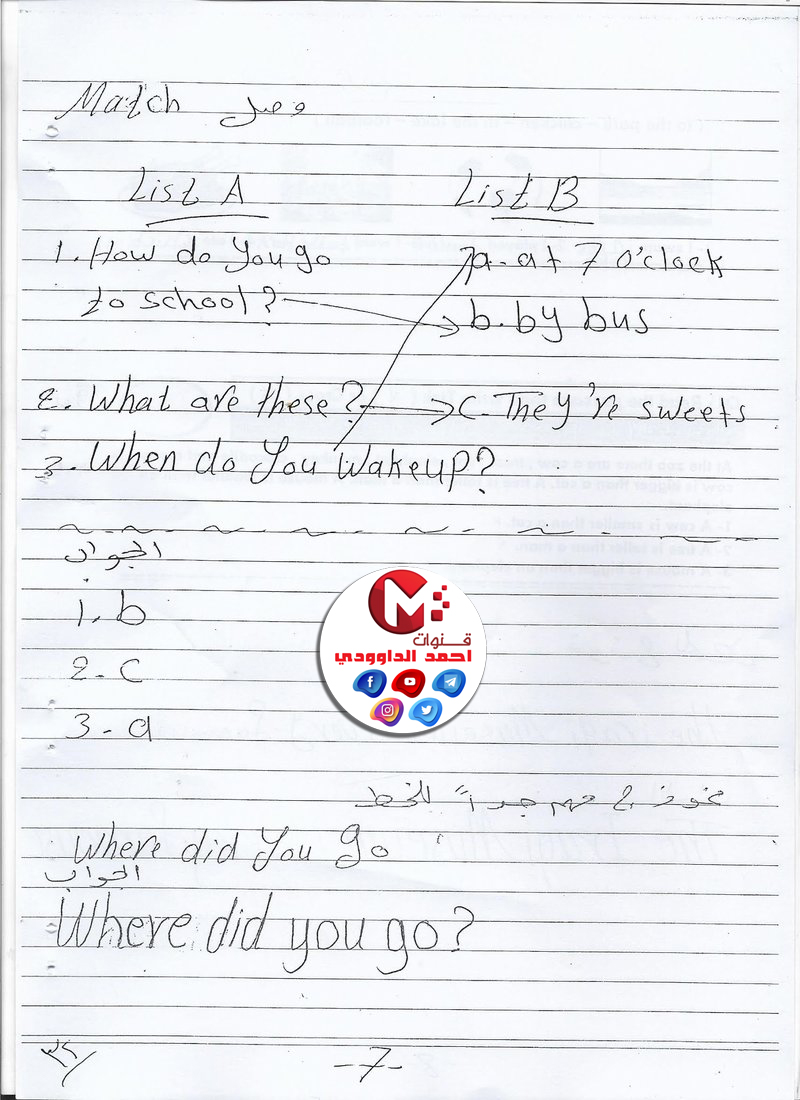 Match وصل
List A List B
1. How do you go a- at 7 o'clock
to school? b. by bus
2. What are these? C. They're sweets
3. When do you wakeup?
الجواب
1. b
2- C
3- a
قنوات
احمد الداوودي
نموذج مهم جداً للخط
Where did you go
الجواب
Where did you go?
-7-